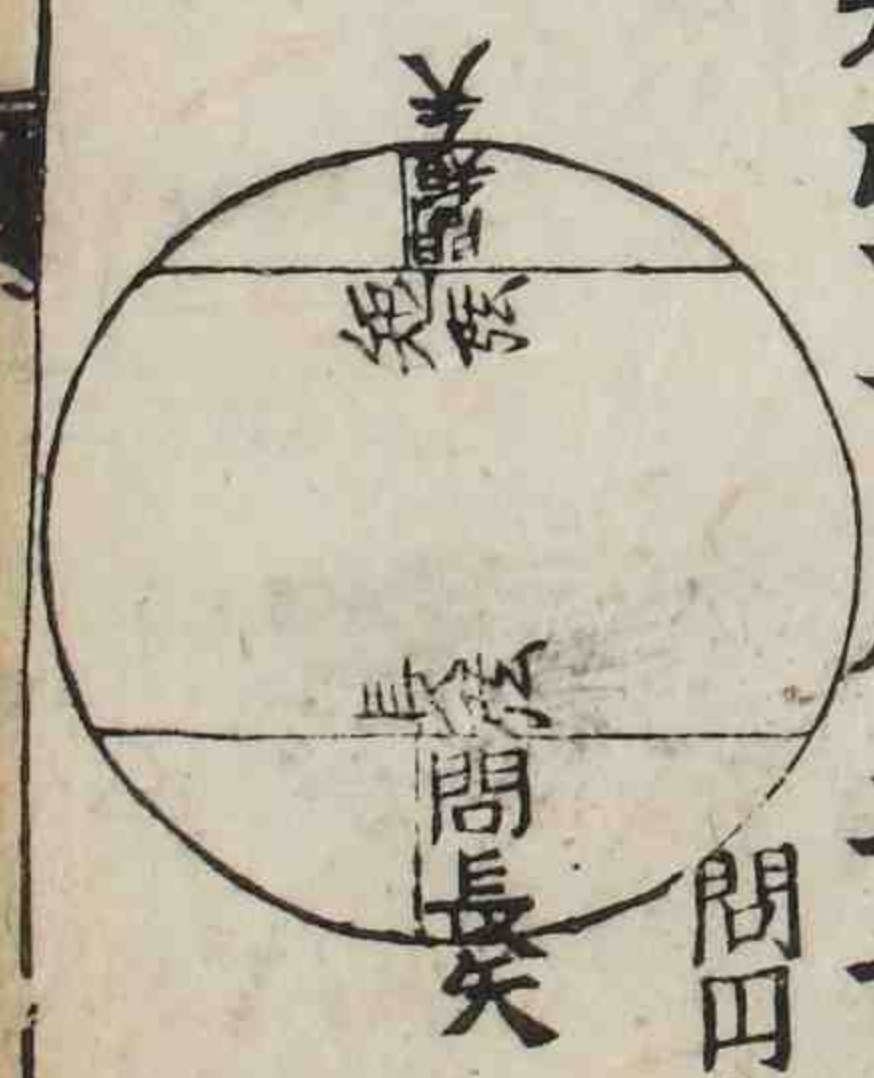 問短矢
短弦
長弦
問長矢
問円